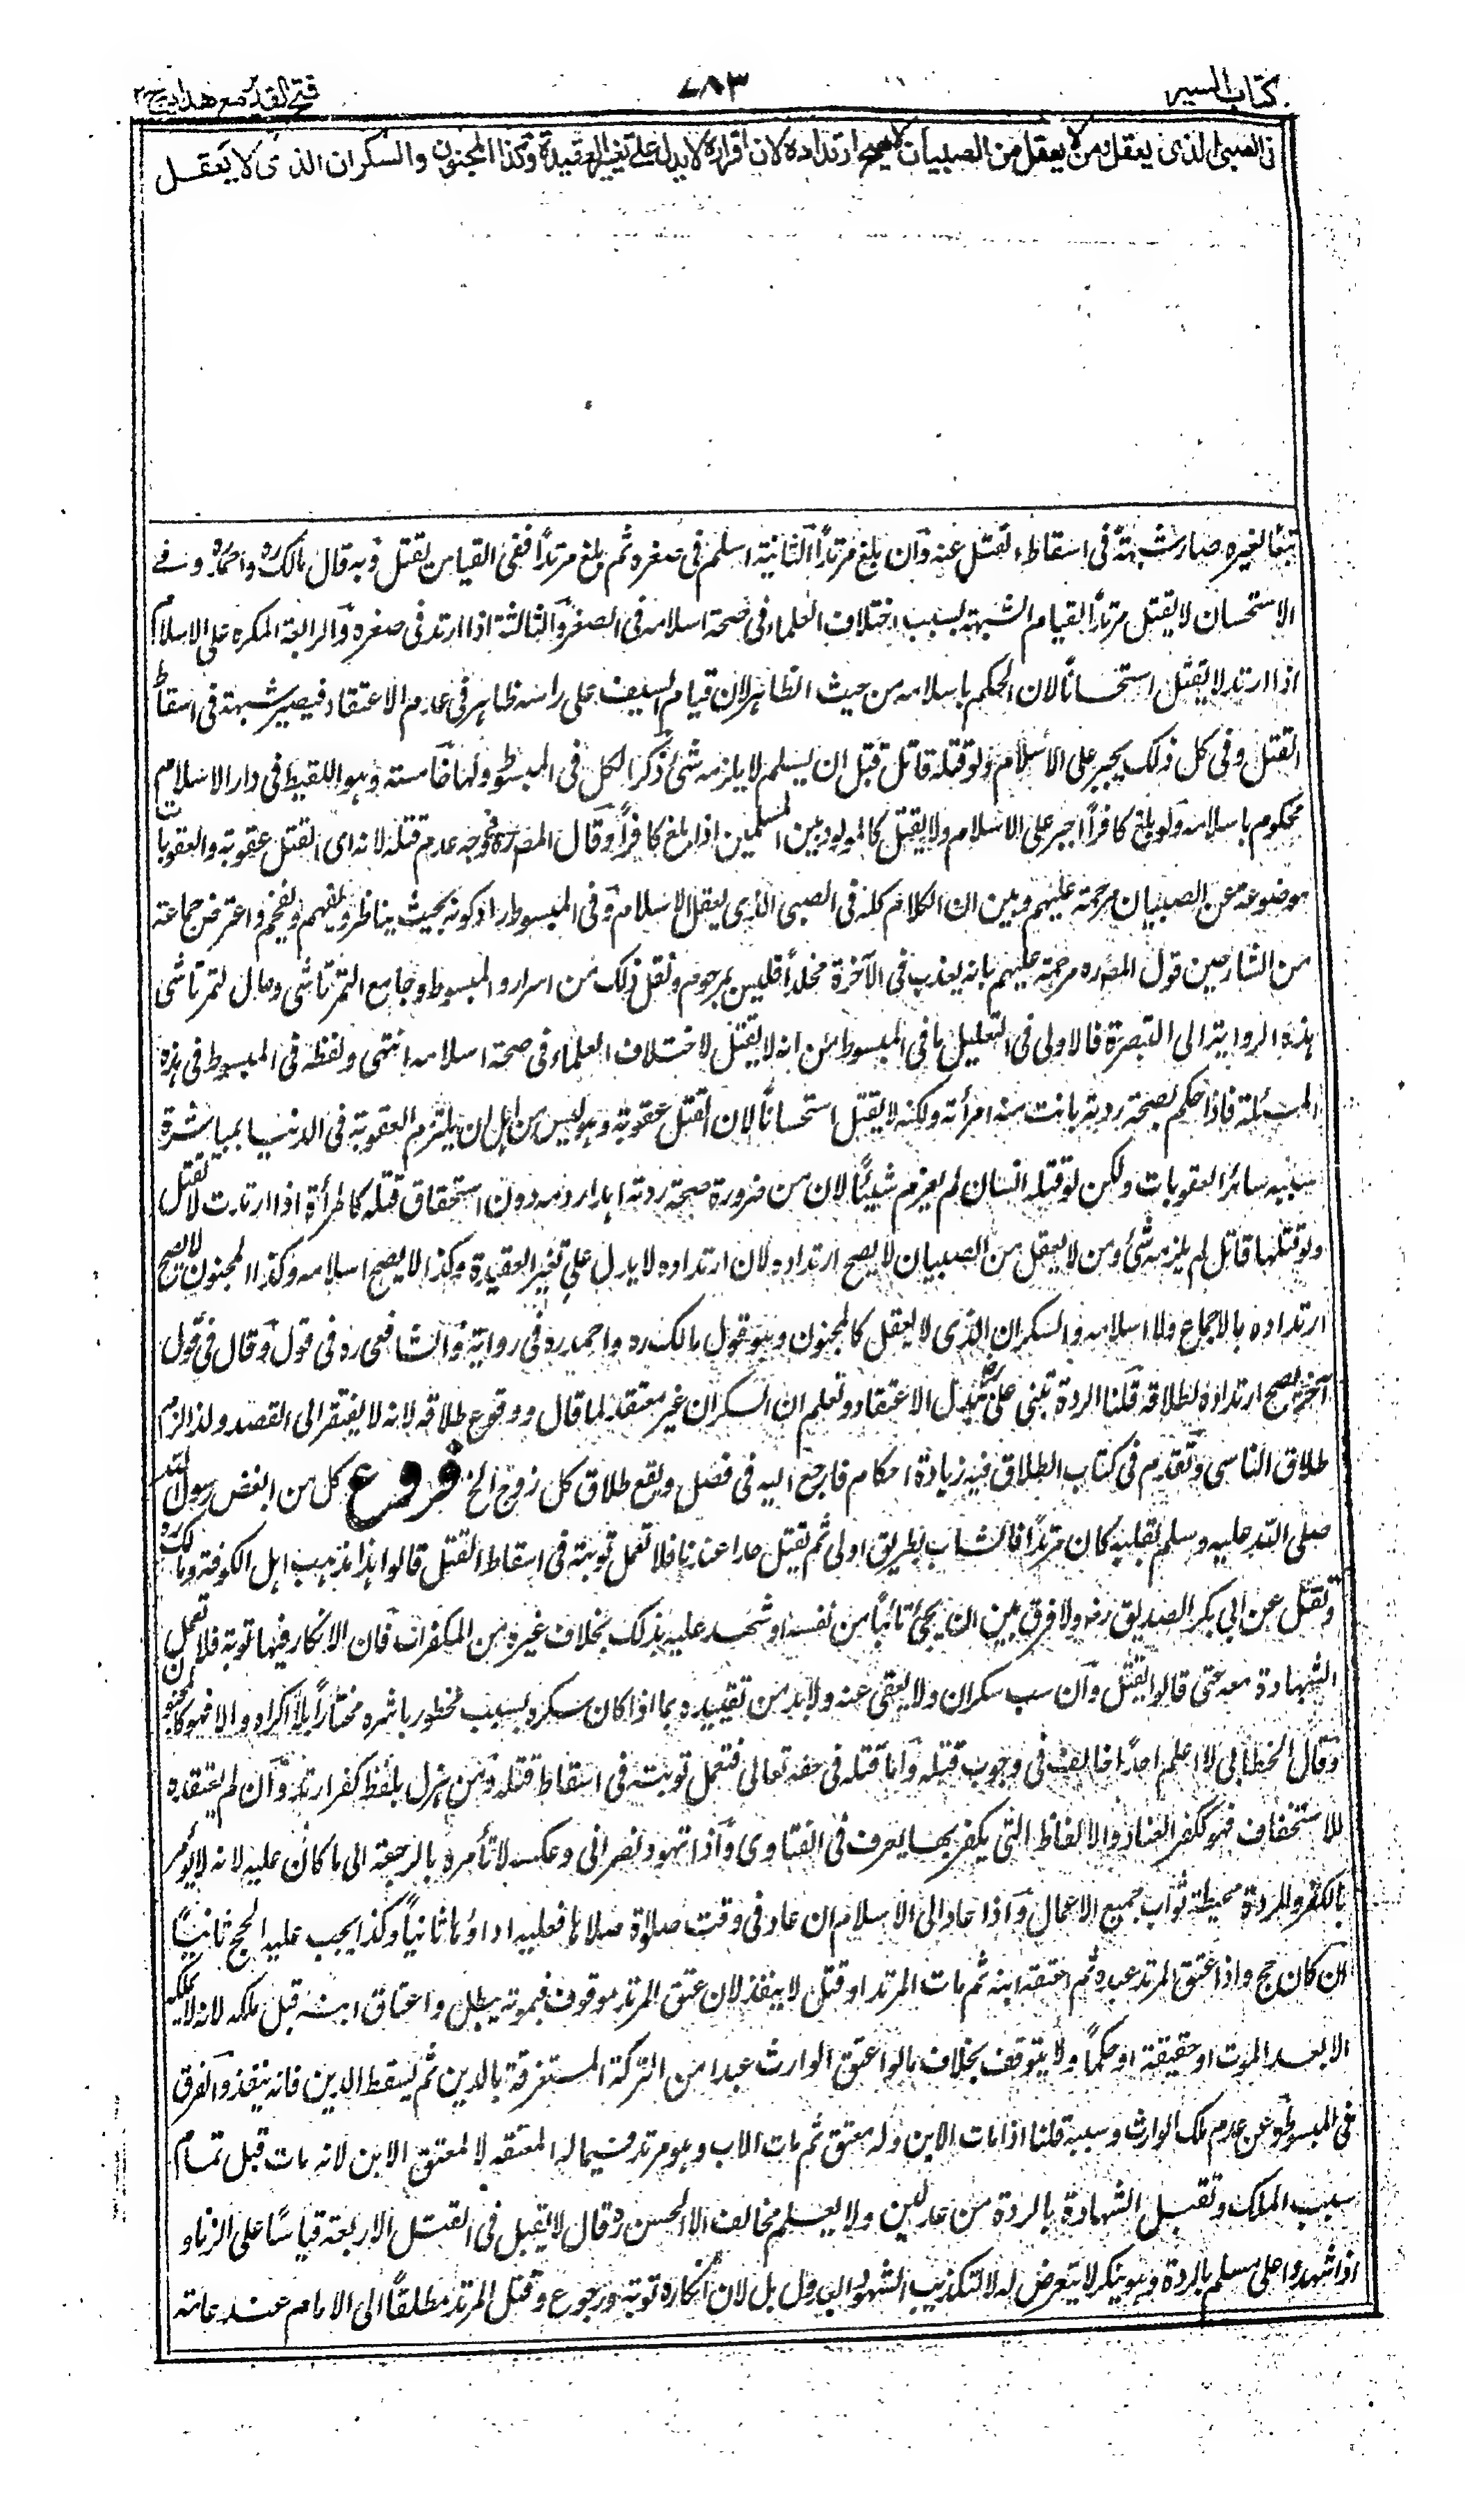 كتاب السير ٧٨٣ فتح القدير مع هدايه ج٢
فى الصبى الذى يعقل ومن لا يعقل من الصبيان لا يصح ارتداده لان اقراره لا يدل على تغيير العقيدة وكذا المجنون والسكران الذى لا يعقل
تبعا لغيره صار شبهة فى اسقاط القتل عنه وان بلغ مرتدًا الثانية اسلم فى صغره ثم بلغ مرتدًا ففى القياس يقتل وبه قال مالك ره واحمد ره وفى
الاستحسان لا يقتل مرتدًا لقيام الشبهة بسبب اختلاف العلماء فى صحة اسلامه فى الصغر والثالثة اذا ارتد فى صغره والرابعة المكره على الاسلام
اذا ارتد لا يقتل استحسانًا لان الحكم باسلامه من حيث الظاهر لان قيام السيف على راسه ظاهر فى عدم الاعتقاد فيصير شبهة فى اسقاط
القتل وفى كل ذلك يجبر على الاسلام ولو قتله قاتل قبل ان يسلم لا يلزمه شئ ذكر الكل فى المبسوط ولها خامسة وهو اللقيط فى دار الاسلام
محكوم باسلامه ولو بلغ كافرًا اجبر على الاسلام ولا يقتل كالمولود بين المسلمين اذا بلغ كافرًا وقال المصره فوجه عدم قتله لانه اى القتل عقوبة والعقوبات
موضوعة عن الصبيان مرحمة عليهم وبين ان الكلام كله فى الصبى الذى يعقل الاسلام وفى المبسوط زاد كونه بحيث يناظر ويفهم ويفحم واعترض جماعة
من الشارحين قول المصره مرحمة عليهم بانه يعذب فى الآخرة مخلدًا فليس بمرحوم ونقل ذلك من اسرار والمبسوط وجامع التمرتاشى وحال التمرتاشى
هذه الرواية الى التبصرة فالاولى فى التعليل ما فى المبسوط من انه لا يقتل لاختلاف العلماء فى صحة اسلامه انتهى ولفظه فى المبسوط فى هذه
المسئلة فاذا حكم بصحة ردته بانت منه امرأته ولكنه لا يقتل استحسانًا لان القتل عقوبة وهو ليس من اهل ان يلتزم العقوبة فى الدنيا بمباشرة
سببه سائر العقوبات ولكن لو قتله انسان لم يغرم شيئًا لان من ضرورة صحة ردته اهدار دمه دون استحقاق قتله كالمرأة اذا ارتدت لا تقتل
ولو قتلها قاتل لم يلزمه شئ ومن لا يعقل من الصبيان لا يصح ارتداده لان ارتداده لا يدل على تغير العقيدة وكذا لا يصح اسلامه وكذا المجنون لا يصح
ارتداده بالاجماع ولا اسلامه والسكران الذى لا يعقل كالمجنون وهو قول مالك ره واحمد ره فى رواية والشافعى ره فى قول وقال فى قول
آخر يصح ارتداده كطلاقه قلنا الردة تبنى على تبدل الاعتقاد ونعلم ان السكران غير معتقد لما قال ووقوع طلاقه لانه لا يفتقر الى القصد ولذا لزم
طلاق الناسى وتقدم فى كتاب الطلاق فيه زيادة احكام فارجع اليه فى فصل ويقع طلاق كل زوج الخ فروع كل من ابغض رسول الله
صلى الله عليه وسلم بقلبه كان مرتدًا فالشاب بطريق اولى ثم يقتل حدا عندنا فلا تعمل توبته فى اسقاط القتل قالوا هذا مذهب اهل الكوفة ومالك ره
ونقل عن ابى بكر الصديق رضه ولا فرق بين ان يجئ تائبًا من نفسه او شهد عليه بذلك بخلاف غيره من المكفرات فان الانكار فيها توبة فلا تعمل
الشهادة معه حتى قالوا يقتل وان سب سكران ولا يعفى عنه ولا بد من تقييده بما اذا كان سكره بسبب محظور باشره مختارًا بلا اكراه والا فهو كالمجنون
وقال الخطابى لا اعلم احدًا خالف فى وجوب قتله واما قتله فى حقه تعالى فتعمل توبته فى اسقاط قتله ومن هزل بلفظ كفر ارتد وان لم يعتقده
للاستخفاف فهو ككفر العناد والالفاظ التى يكفر بها يعرف فى الفتاوى واذا تهود نصرانى وعكسه لا تأمره بالرجعة الى ما كان عليه لانه لا يؤمر
بالكفر والردة محبطة ثواب جميع الاعمال واذا عاد الى الاسلام ان عاد فى وقت صلاة صلاها فعليه اداؤها ثانيًا وكذا يجب عليه الحج ثانيًا
ان كان حج واذا عتق المرتد عبده ثم اعتقه ابنه ثم مات المرتد او قتل لا ينفذ لان عتق المرتد موقوف فبموته يبطل واعتاق ابنه قبل ملكه لانه لا يملكه
الا بعد الموت او حقيقة او حكمًا ولا يتوقف بخلاف ما لو اعتق الوارث عبدا من التركة المستغرقة بالدين ثم يسقط الدين فانه ينفذ والفرق
فى المبسوط وعن عدم ملك الوارث وسببه قلنا اذا مات الابن وله معتق ثم مات الاب وهو مرتد فيماله لمعتقه لا لمعتق الابن لانه مات قبل تمام
سبب الملك وتقبل الشهادة بالردة من عدلين ولا يعلم مخالف الا الحسن ره قال لا يقبل فى القتل الا اربعة قياسًا على الزنا و
اذا شهدوا على مسلم بالردة وهو ينكر لا يتعرض له لا لتكذيب الشهود العدول بل لان انكاره توبة ورجوع وقتل المرتد مطلقًا الى الامام عند عامة